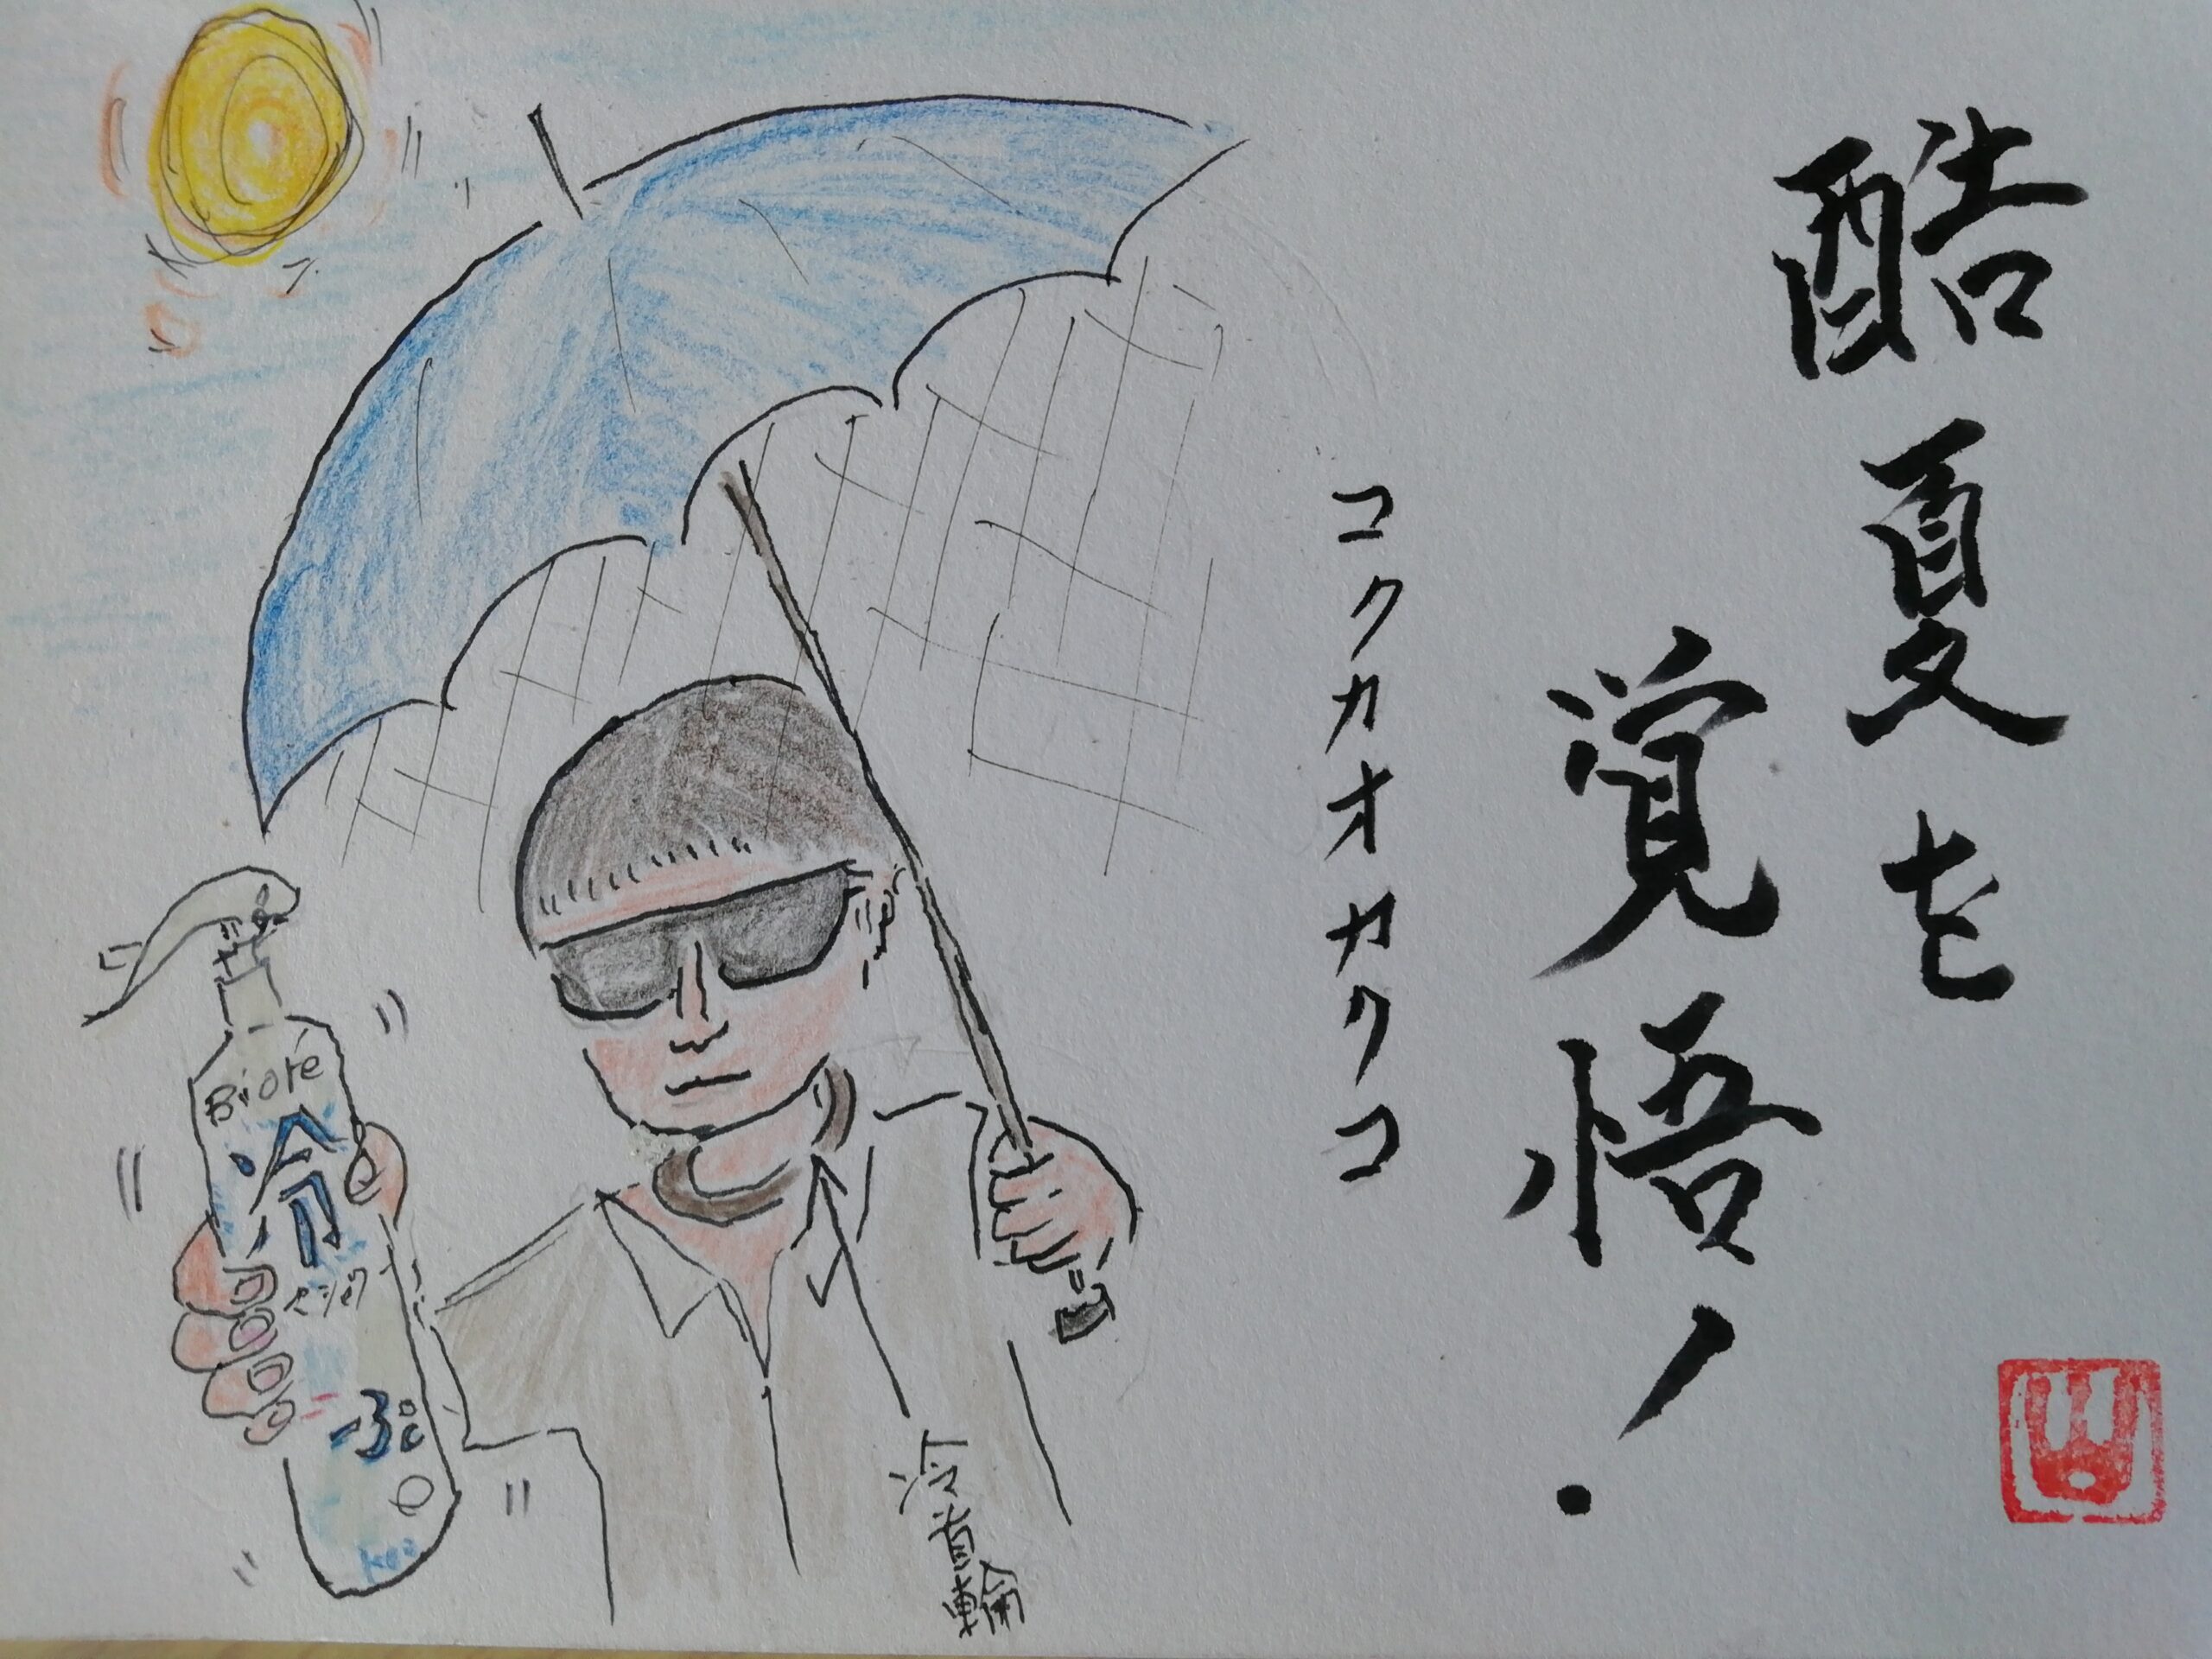 酷夏を
覚悟!
コクカオカクコ
Bioré
冷
-3℃
冷首輪